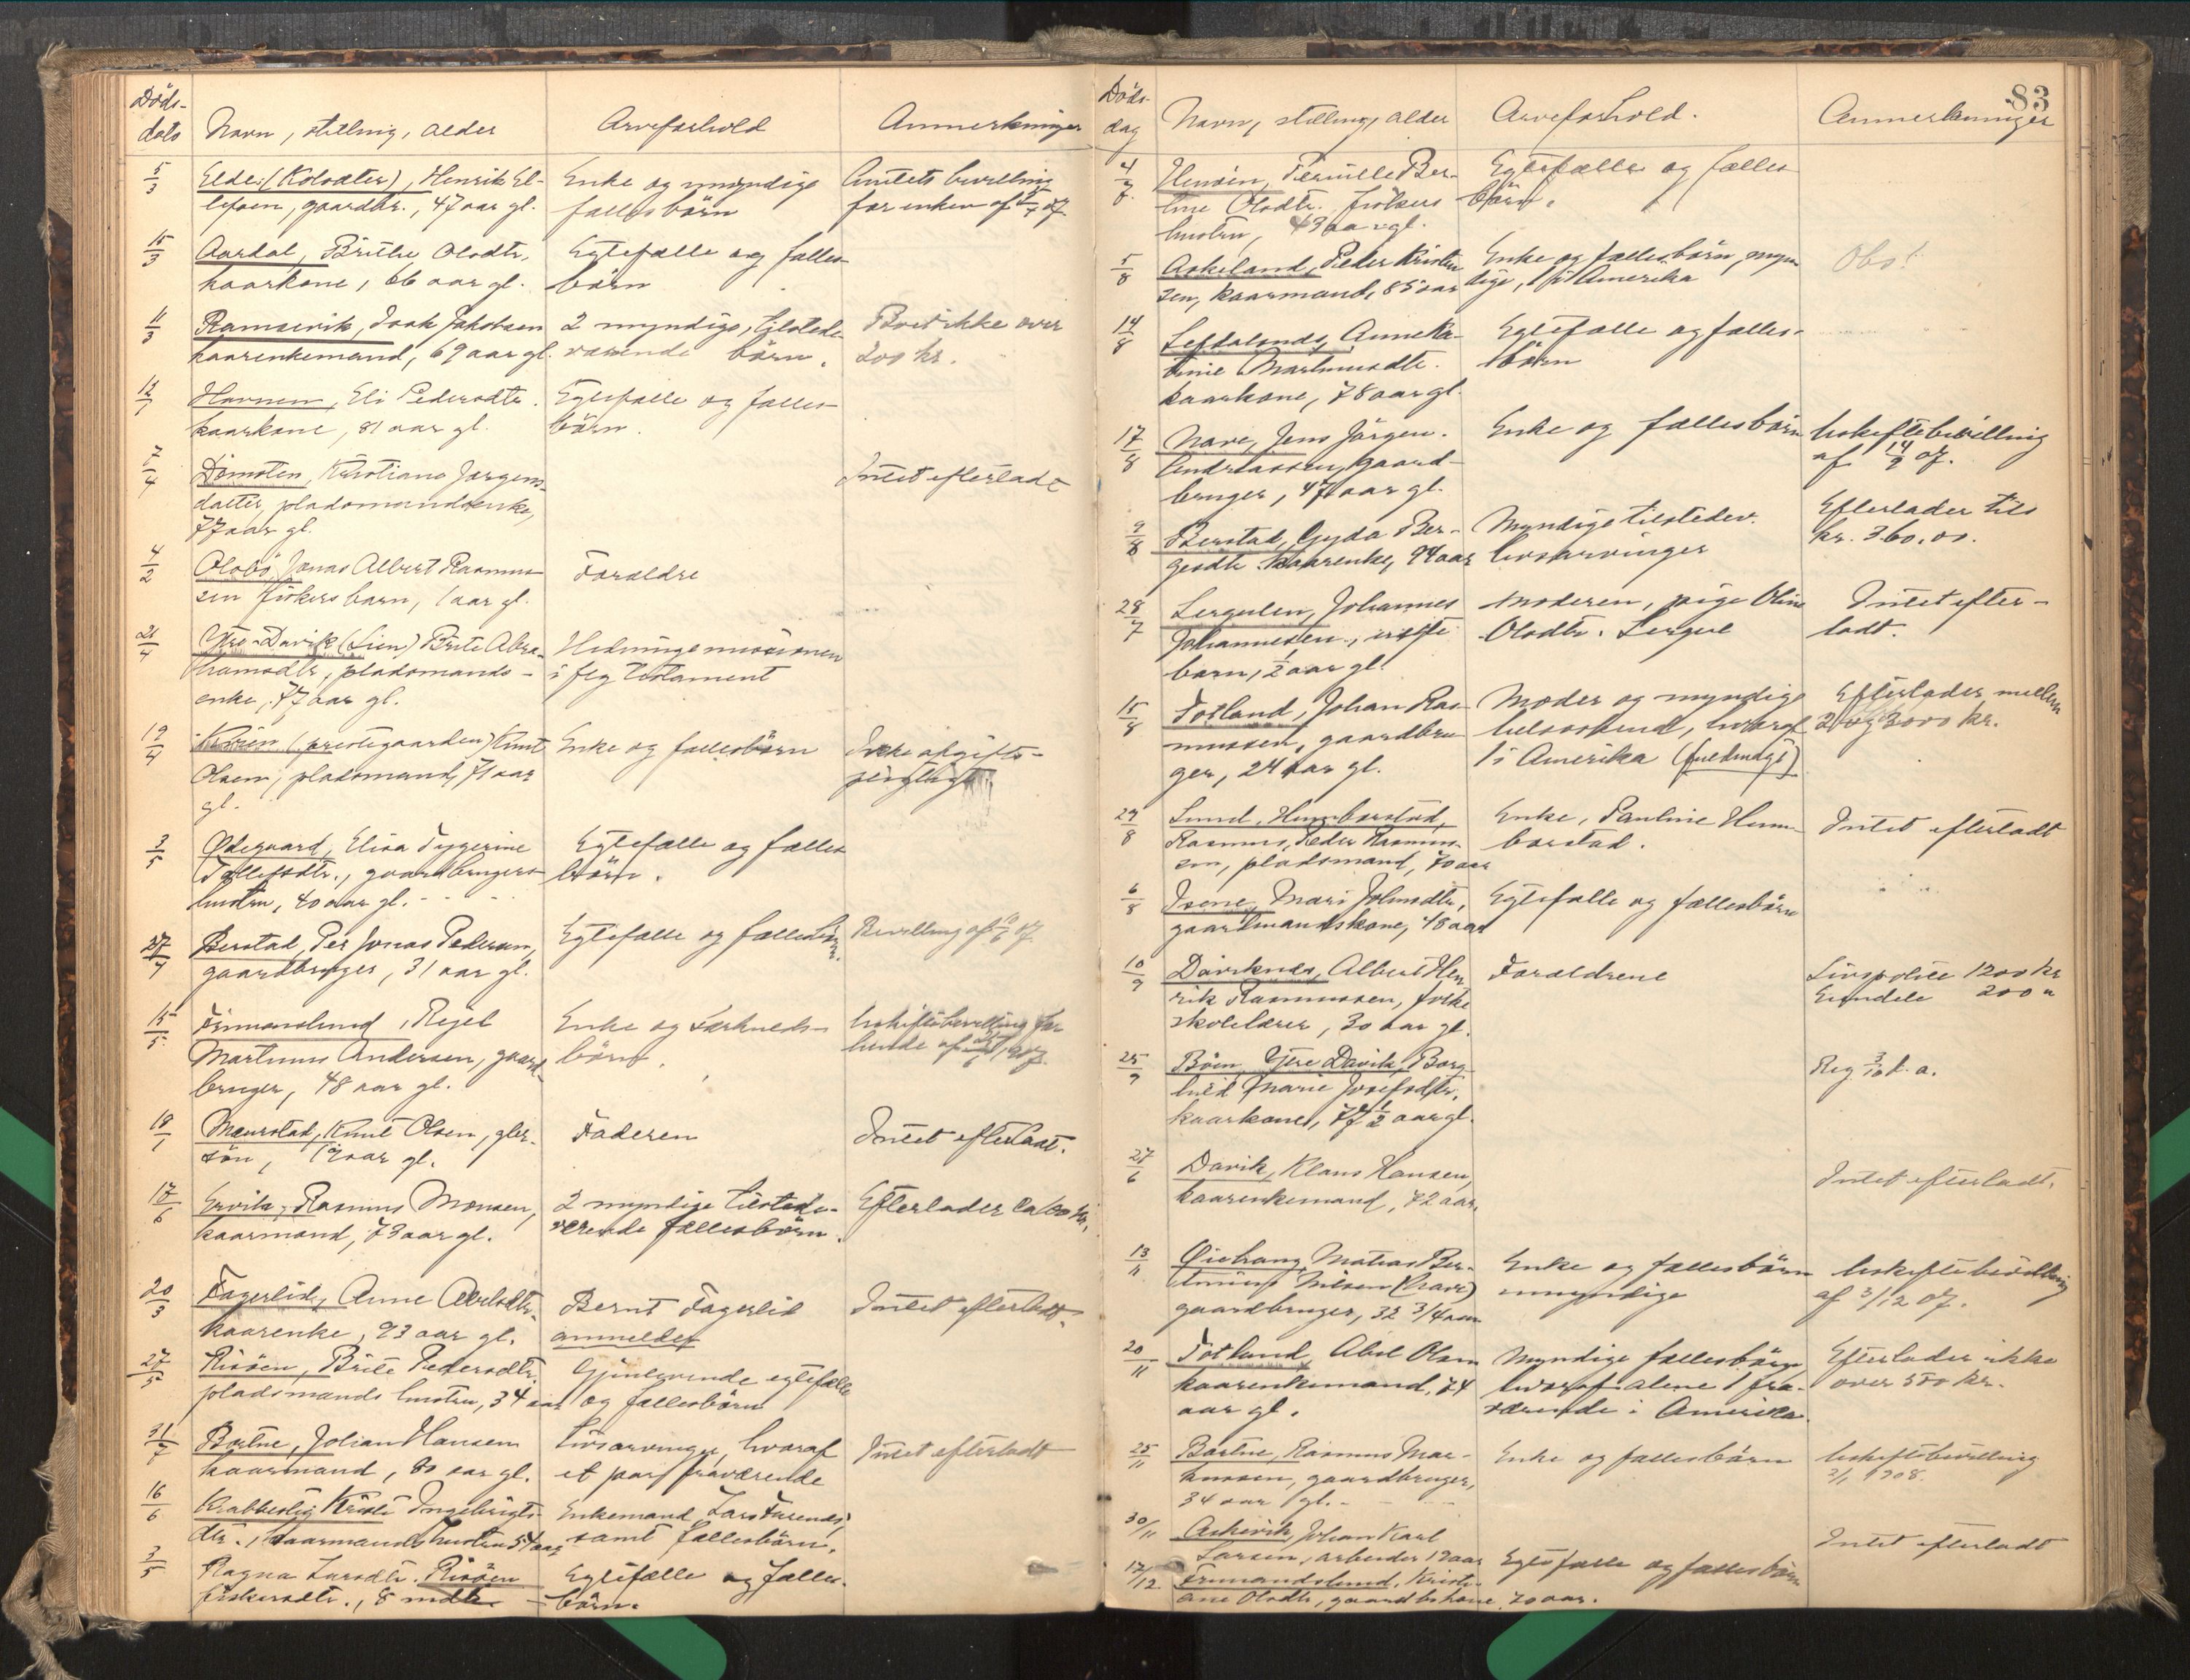 Döds-
dato Navn, stilling, alder Arveforhold Anmerkninger
5/3 Elde (Kolsæter), Henrik El-
lefsen, gaardbr., 47 aar gl.
Enke og myndige
fællesbörn
Amtets bevilling
for enken af
15/3 Aardal, Brithe Olsdtr,
kaarkone, 66 aar gl.
Egtefælle og fælles
börn
11/3 Ramsevik, Isak Jakobsen
kaarenkemand, 69 aar gl.
2 myndige, tilstede-
værende börn.
Boet ikke over
200 kr.
12/1 Havnen, Eli Pedersdtr.
kaarkone, 81 aar gl.
Egtefælle og fælles
börn.
7/4 Kristiane Jørgens-
datter, pladsmandsenke,
77 aar gl.
Intet efterladt
4/2 Jonas Albert Rasmus-
sen fiskers barn, 1 aar gl.
Forældre
21/4 Ytre-Davik (Lien) Brite Abra-
hamsdtr, pladsmands-
enke, 77 aar gl.
Hedningemissionen
i flg testament
19/4 (prestegaarden) Knut
Olsen, pladsmand, 71 aar
gl.
Enke og fællesbörn
Ikke afgifts-
pligtigt.
3/5 Ødegaard, Elisa Tygerine
Tollefsdtr., gaardbrugers
hustru, 40 aar gl.
Egtefælle og fælles
börn.
27/4 Berstad, Per Jonas Pedersen,
gaardbruger, 31 aar gl.
Egtefælle og fællesbörn
Bevilling af 07
15/5 Finnanslund, Rejel
Martinus Andersen, gaard-
bruger, 48 aar gl.
Enke og særkulds-
börn.
Uskiftebevilling for
hende af 1907.
18/1 Maurstad, Knut Olsen, gbr.
sön, 19 aar gl.
Faderen
Intet efterladt.
17/6 Ervik, Rasmus Monsen,
kaarmand, 73 aar gl.
2 myndige tilstede-
værende fællesbörn.
Efterlader ca 100 kr.
20/3 Fagerlid, Anne Abelsdtr.
kaarenke, 93 aar gl.
Bernt Fagerlid
anmelder
Intet efterladt.
27/5 Risöen, Brite Pedersdtr.
pladsmands hustru, 34 aar
Gjenlevende egtefælle
og fællesbörn
31/7 Bortne, Johan Hansen
kaarmand, 80 aar gl.
Livsarvinger, hvoraf
et par fraværende
Intet efterladt
16/6 Krabbestig Kristi Ingebrigts-
dtr., kaarmands hustru 54 aar
Enkemand Lars
samt fællesbörn.
3/5 Ragna Larsdtr. Risöen
fiskersdtr., 8 mdr.
Egtefælle og fælles-
börn.
83
Döds-
dag Navn, stilling, alder Arveforhold. Anmerkninger
4/7 Pernille Ber-
tine Olsdtr. fiskers
hustru, 43 aar gl.
Egtefælle og fælles
börn.
5/8 Askeland, Peder Kristen-
sen, kaarmand, 85 aar
Enke og fællesbörn, myn-
dige, 1 i Amerika
Obs!
14/8 Anne Ka-
trine Martinusdtr.
kaarkone, 78 aar gl.
Egtefælle og fælles-
börn
17/8 Nave, Jens Jörgen
Andreassen, gaard-
bruger, 47 aar gl.
Enke og fællesbörn
Uskiftebevilling
af 14/9 07.
9/8 Berstad, Gyda Ber-
gesdtr kaarenke, 94 aar
Myndige tilstedev.
livsarvinger
Efterlader tils
kr. 360,00.
28/7 Lergulen, Johannes
Johannesen, uægte
barn, 1/2 aar gl.
Moderen, pige Oline
Olsdtr. Lergul
Intet efter-
ladt.
15/8 Totland, Johan Ras-
mussen, gaardbru-
ger, 24 aar gl.
Moder og myndige
helsöskend, hvoraf
1 i Amerika (fuldmagt)
Efterlader mellem
2 og 3000 kr.
29/8 Lund, Hunnbærstad,
Rasmus, Peder Rasmus-
sen, pladsmand, 70 aar
Enke, Pauline Hunn-
barstad.
Intet efterladt
6/8 Isene, Mari Johnsdtr,
gaardmandskone, 48 aar
Egtefælle og fællesbörn
10/9 Daviknes, Albert Hen-
rik Rasmussen, folke
skolelærer, 30 aar gl.
Forældrene
Livspolice 1200 kr
Eiendele 200 "
25/9 Böen, Ytre Davik, Borg-
hild Marie Josefsdtr,
kaarkone, 77 1/2 aar gl.
Reg 3/10 d. a.
27/6 Davik, Klaus Hansen,
kaarenkemand, 72 aar.
Intet efterladt.
13/11 Matias Ber-
Nilsen (Nave)
gaardbruger, 32 3/4 aar
Enke og fællesbörn
umyndige
Uskiftebevilling
af 3/12 07.
20/11 Totland, Abel Olsen
kaarenkemand, 74
aar gl.
Myndige fællesbörn
hvoraf alene 1 fra-
værende i Amerika.
Efterlader ikke
over 500 kr.
25/11 Bortne, Rasmus Mar-
kussen, gaardbruger,
34 aar gl.
Enke og fællesbörn
Uskiftebevilling
3/1 1908.
30/11 Askevik, Johan Karl
Larsen, arbeider 19 aar
Intet efterladt
17/12 Finnandslund, Kristi-
ane Olsdtr, gaardbr kone 70 aar.
Egtefælle og fællesbörn